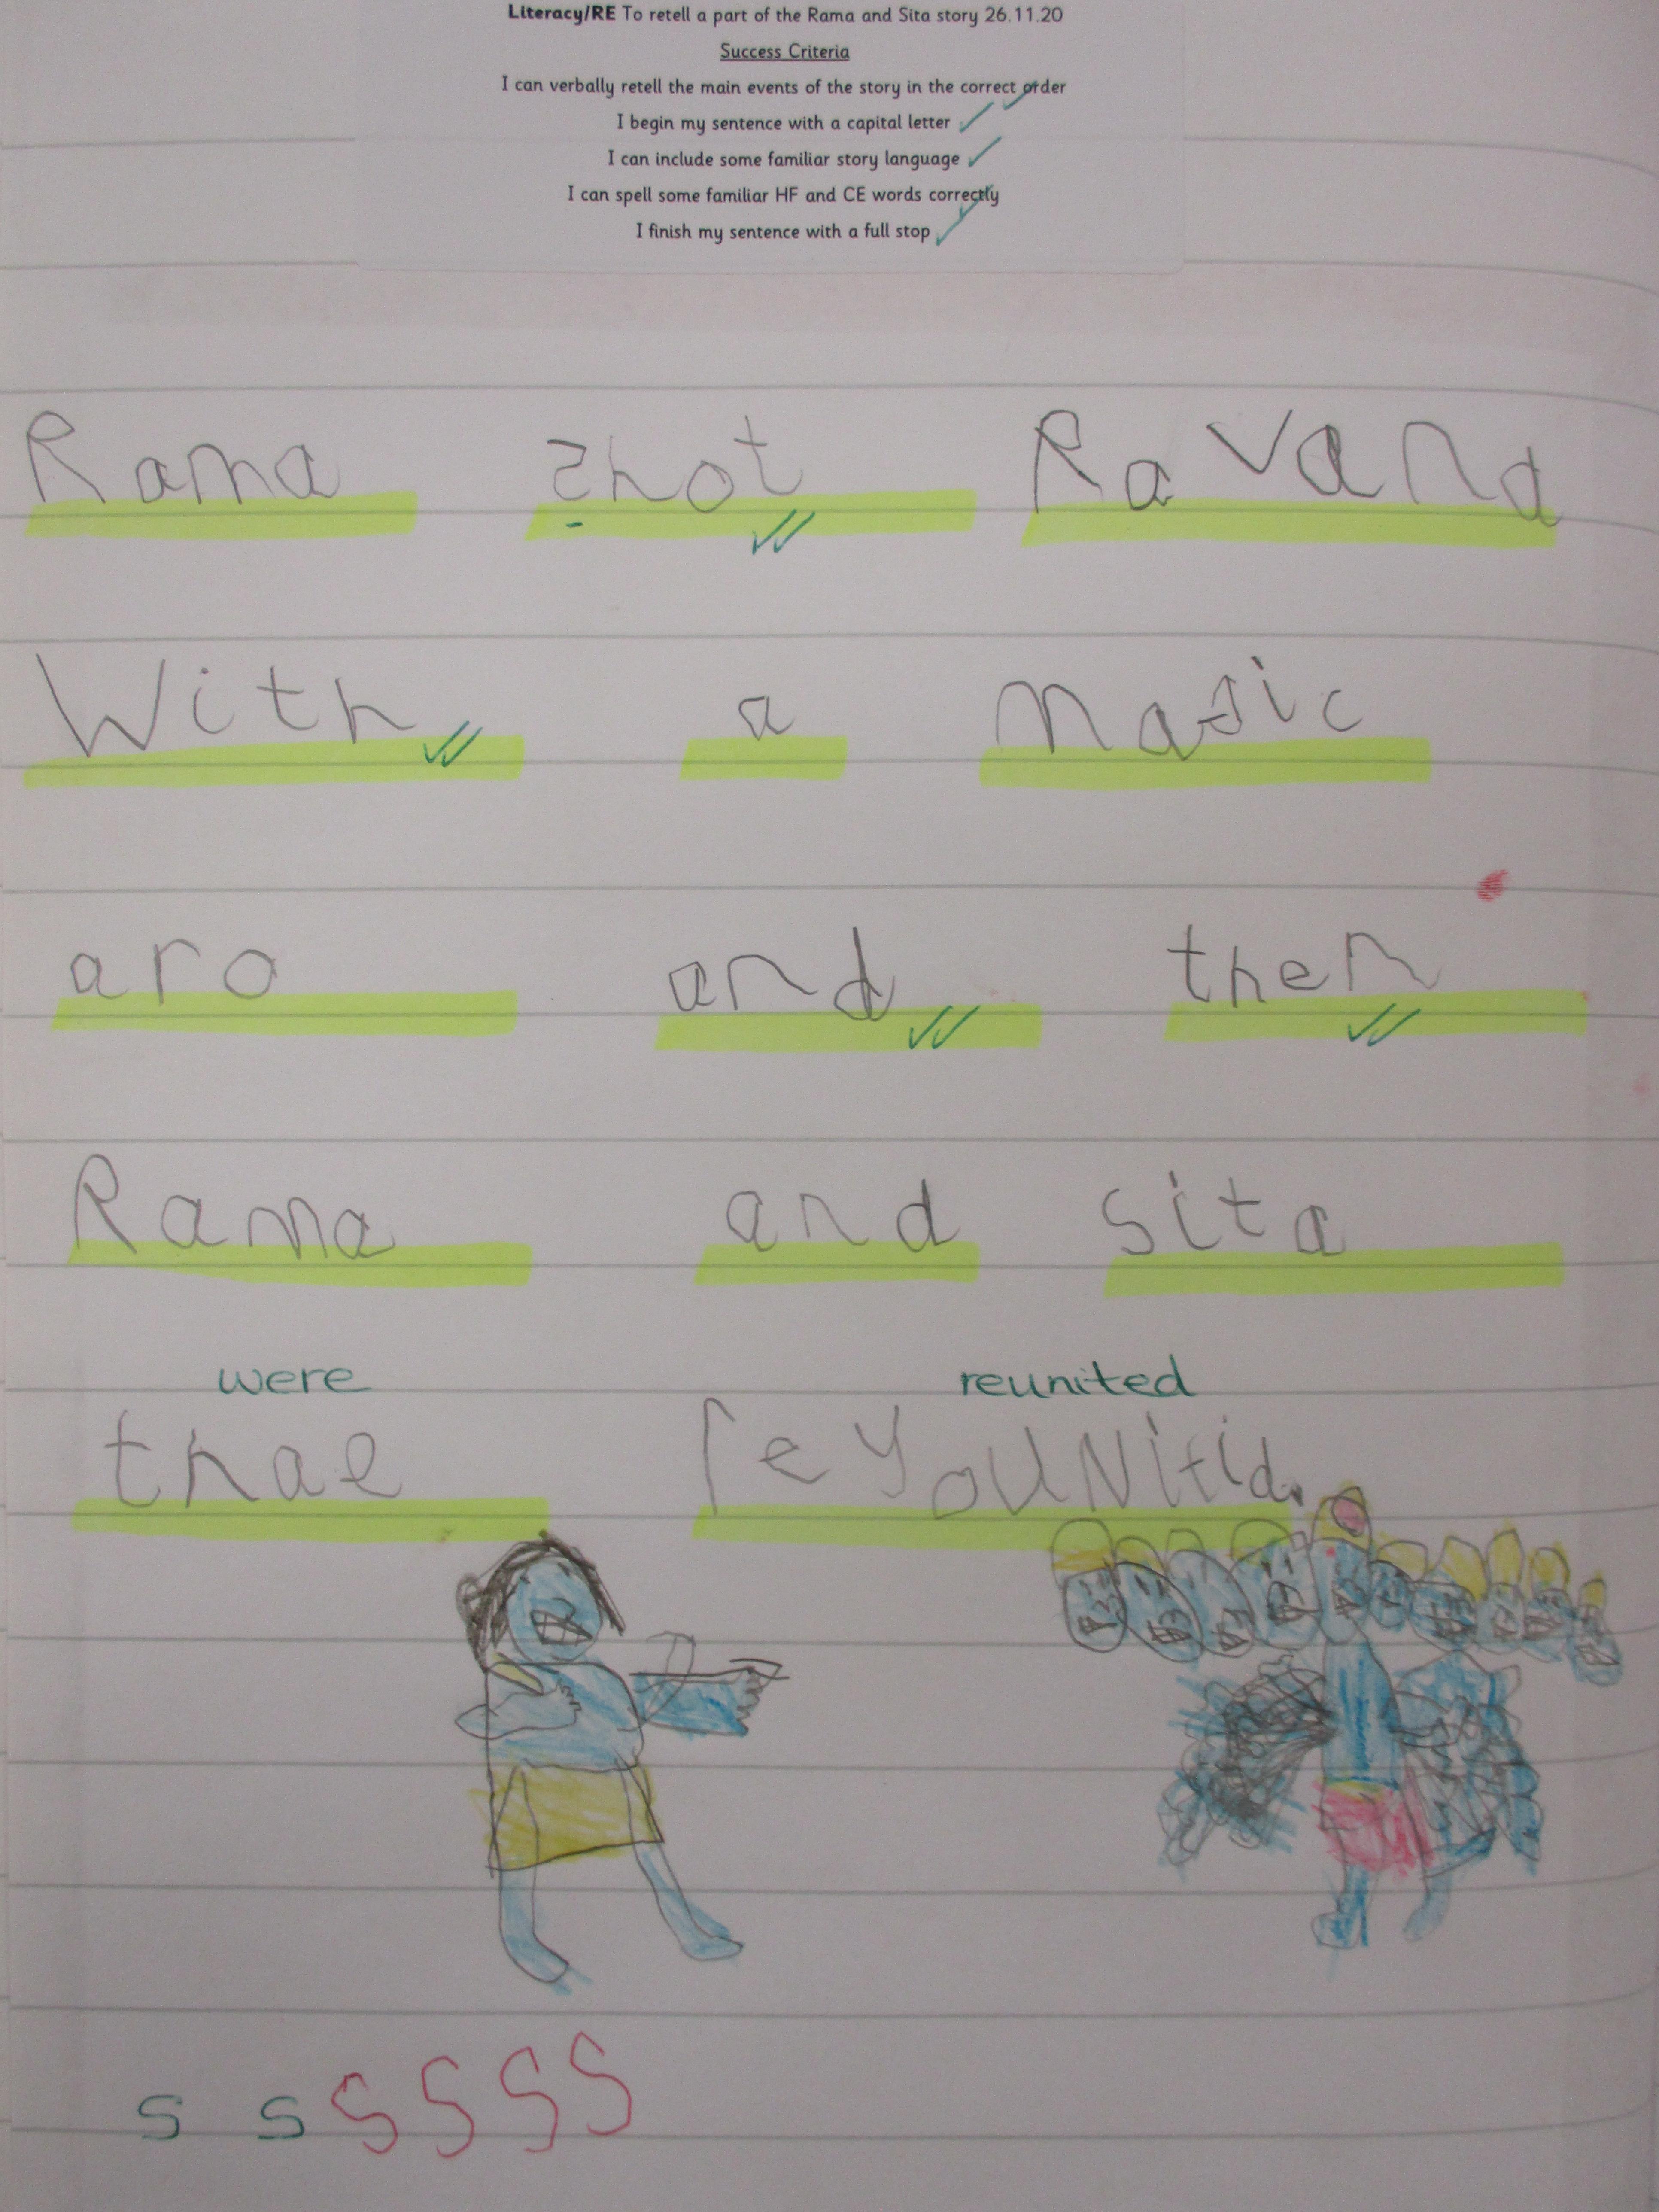 Literacy/RE To retell a part of the Rama and Sita story 26.11.20
Success Criteria
I can verbally retell the main events of the story in the correct order
I begin my sentence with a capital letter
I can include some familiar story language
I can spell some familiar HF and CE words correctly
I finish my sentence with a full stop
Rama shot Ravana
With a majic
aro and then
Rama and sita
were reunited
thae reyoUNitid.
s s s s s s